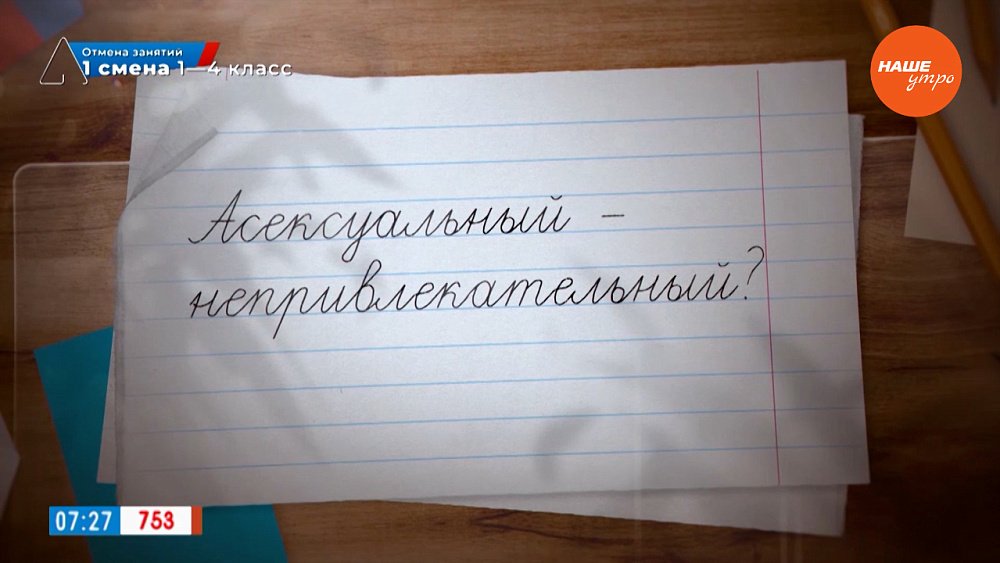 Отмена занятий
1 смена 1—4 класс
НАШЕ
утро
Асексуальный –
непривлекательный?
07:27 753